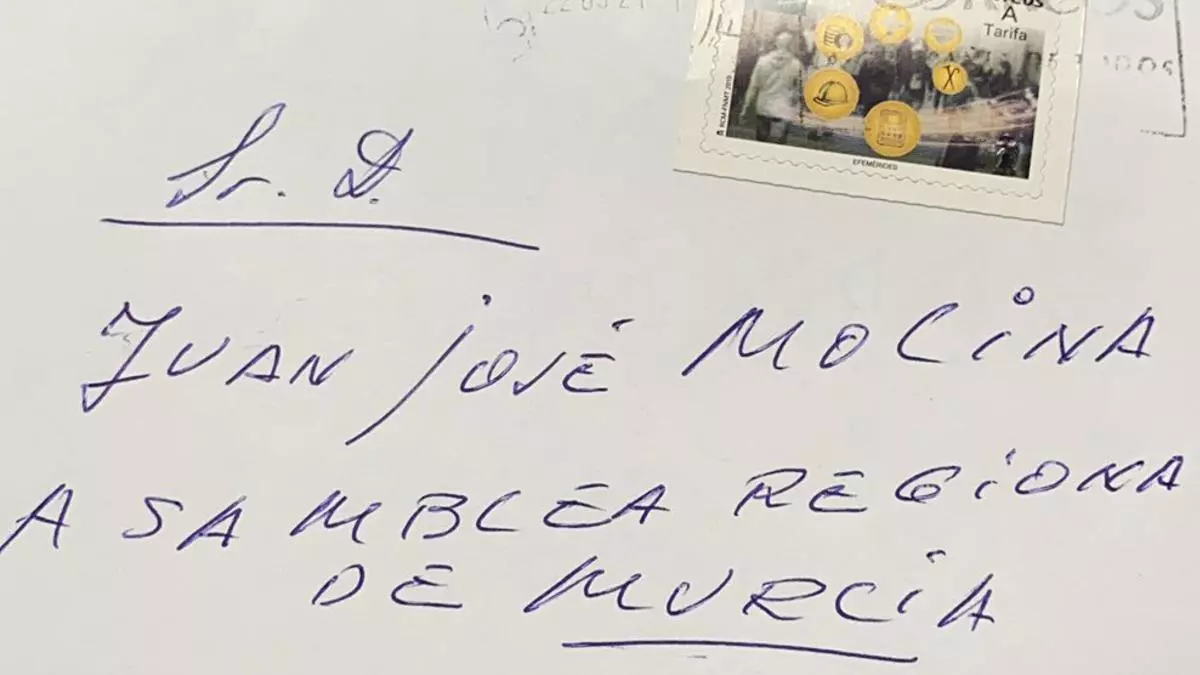 22 03 21
A
Tarifa
RCM-FNMT 2019
EFEMÉRIDES
Sr. D.
JUAN JOSÉ MOLINA
ASAMBLEA REGIONA
DE MURCIA